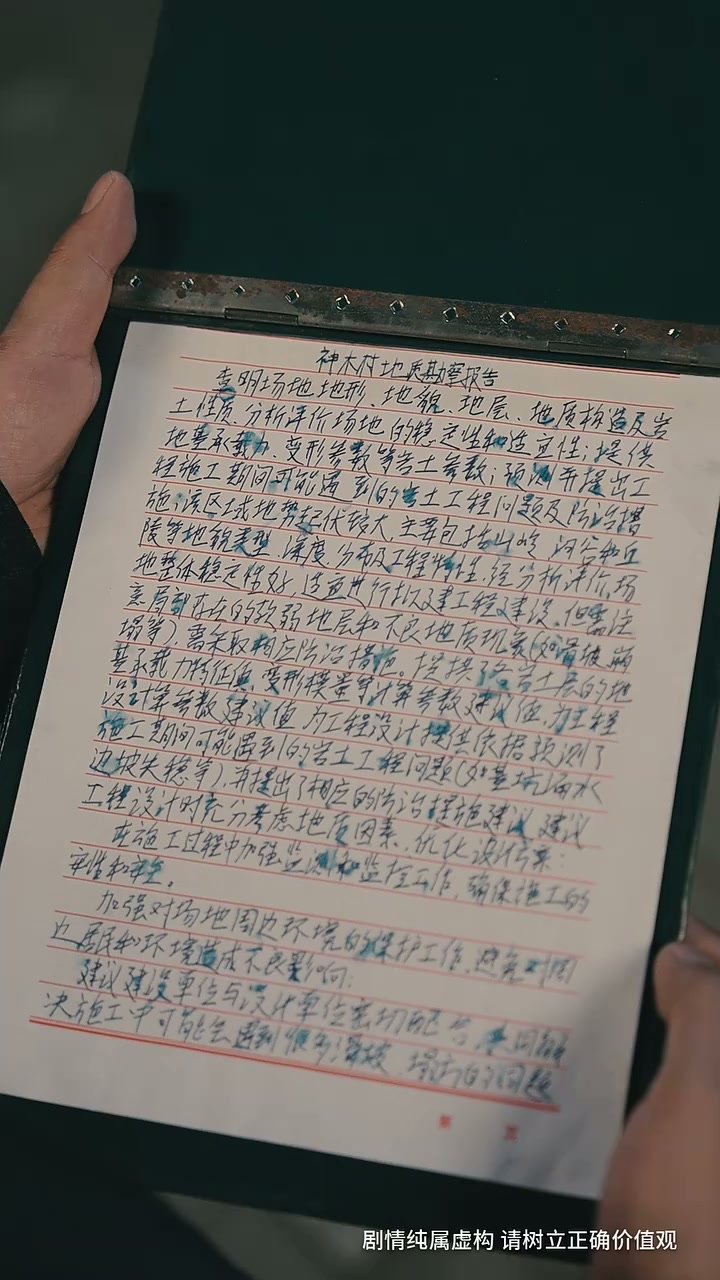 神木村地质勘察报告
查明场地地形、地貌、地层、地质构造及岩
土性质,分析评价场地的稳定性和适宜性;提供
地基承载力、变形参数等岩土参数;预测并提出工
程施工期间可能遇到的岩土工程问题及防治措
施;该区域地势起伏较大,主要包括山岭、河谷和丘
陵等地貌类型、深度、分布及工程特性,经分析评价,场
地整体稳定性好,适宜进行拟建工程建设。但需注
意局部存在的软弱地层和不良地质现象(如滑坡、崩
塌等)需采取相应防治措施。提供了各岩土层的地
基承载力特征值、变形模量等计算参数建议值,为工程
设计算参数建议值,为工程设计提供依据预测了
施工期间可能遇到的岩土工程问题(如基坑涌水
边坡失稳等),并提出了相应的防治措施建议,建议
工程设计时充分考虑地质因素,优化设计方案;
在施工过程中加强监测和监控工作,确保施工的
安性和安全。
加强对场地周边环境的保护工作,避免对周
边居民和环境造成不良影响;
建议建设单位与设计单位密切配合,共同解
决施工中可能会遇到很多滑坡、塌方的问题
第 页
剧情纯属虚构 请树立正确价值观